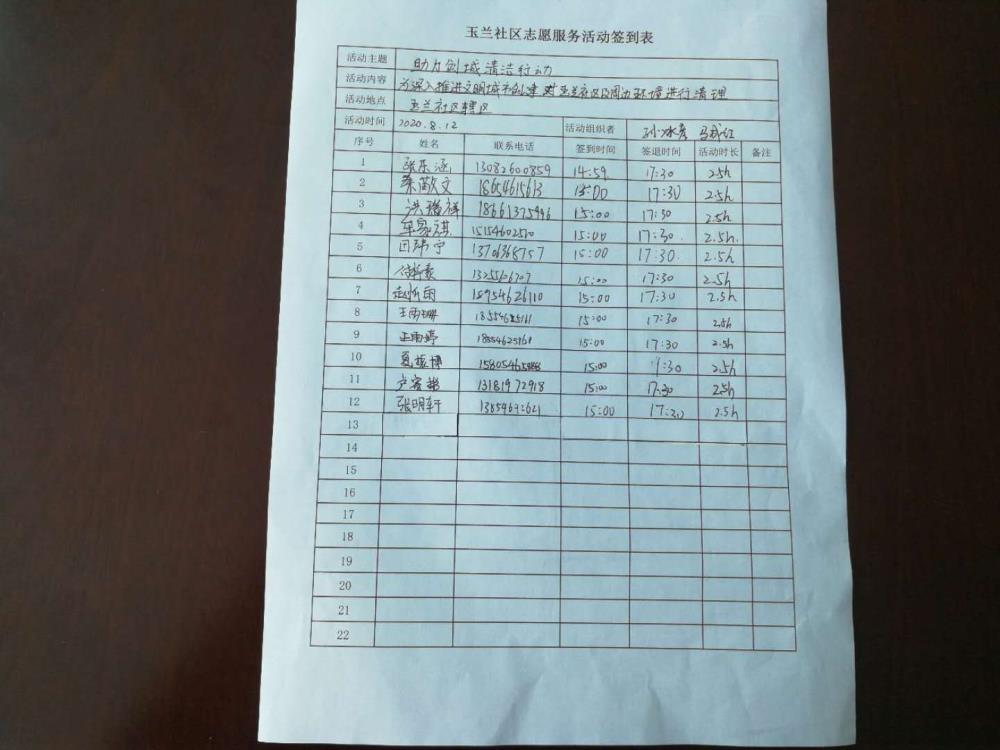 玉兰社区志愿服务活动签到表
活动主题 助力创城清洁行动
活动内容 为深入推进文明城市创建 对玉兰社区及周边环境进行清理
活动地点 玉兰社区辖区
活动时间 2020.8.12 活动组织者
序号 姓名 联系电话 签到时间 签退时间 活动时长 备注
1 13082600859 14:59 17:30 2.5h
2 18654615613 15:00 17:30 2.5h
3 洪瑞祥 15:00 17:30 2.5h
4 15154602510 15:00 17:30. 2.5h.
5 田玮宁 15:00 17:30. 2.5h
6 15:00 17:30 2.5h
7 15954626110 15:00 17:30 2.5h
8 王雨珊 15:00 17:30 2.5h
9 王雨婷 15:00 17:30 2.5h
10 夏振博 15:00 2.5h
11 13181972918 15:00 17:30 2.5h
12 张明轩 15:00 17:30 2.5h
13
14
15
16
17
18
19
20
21
22